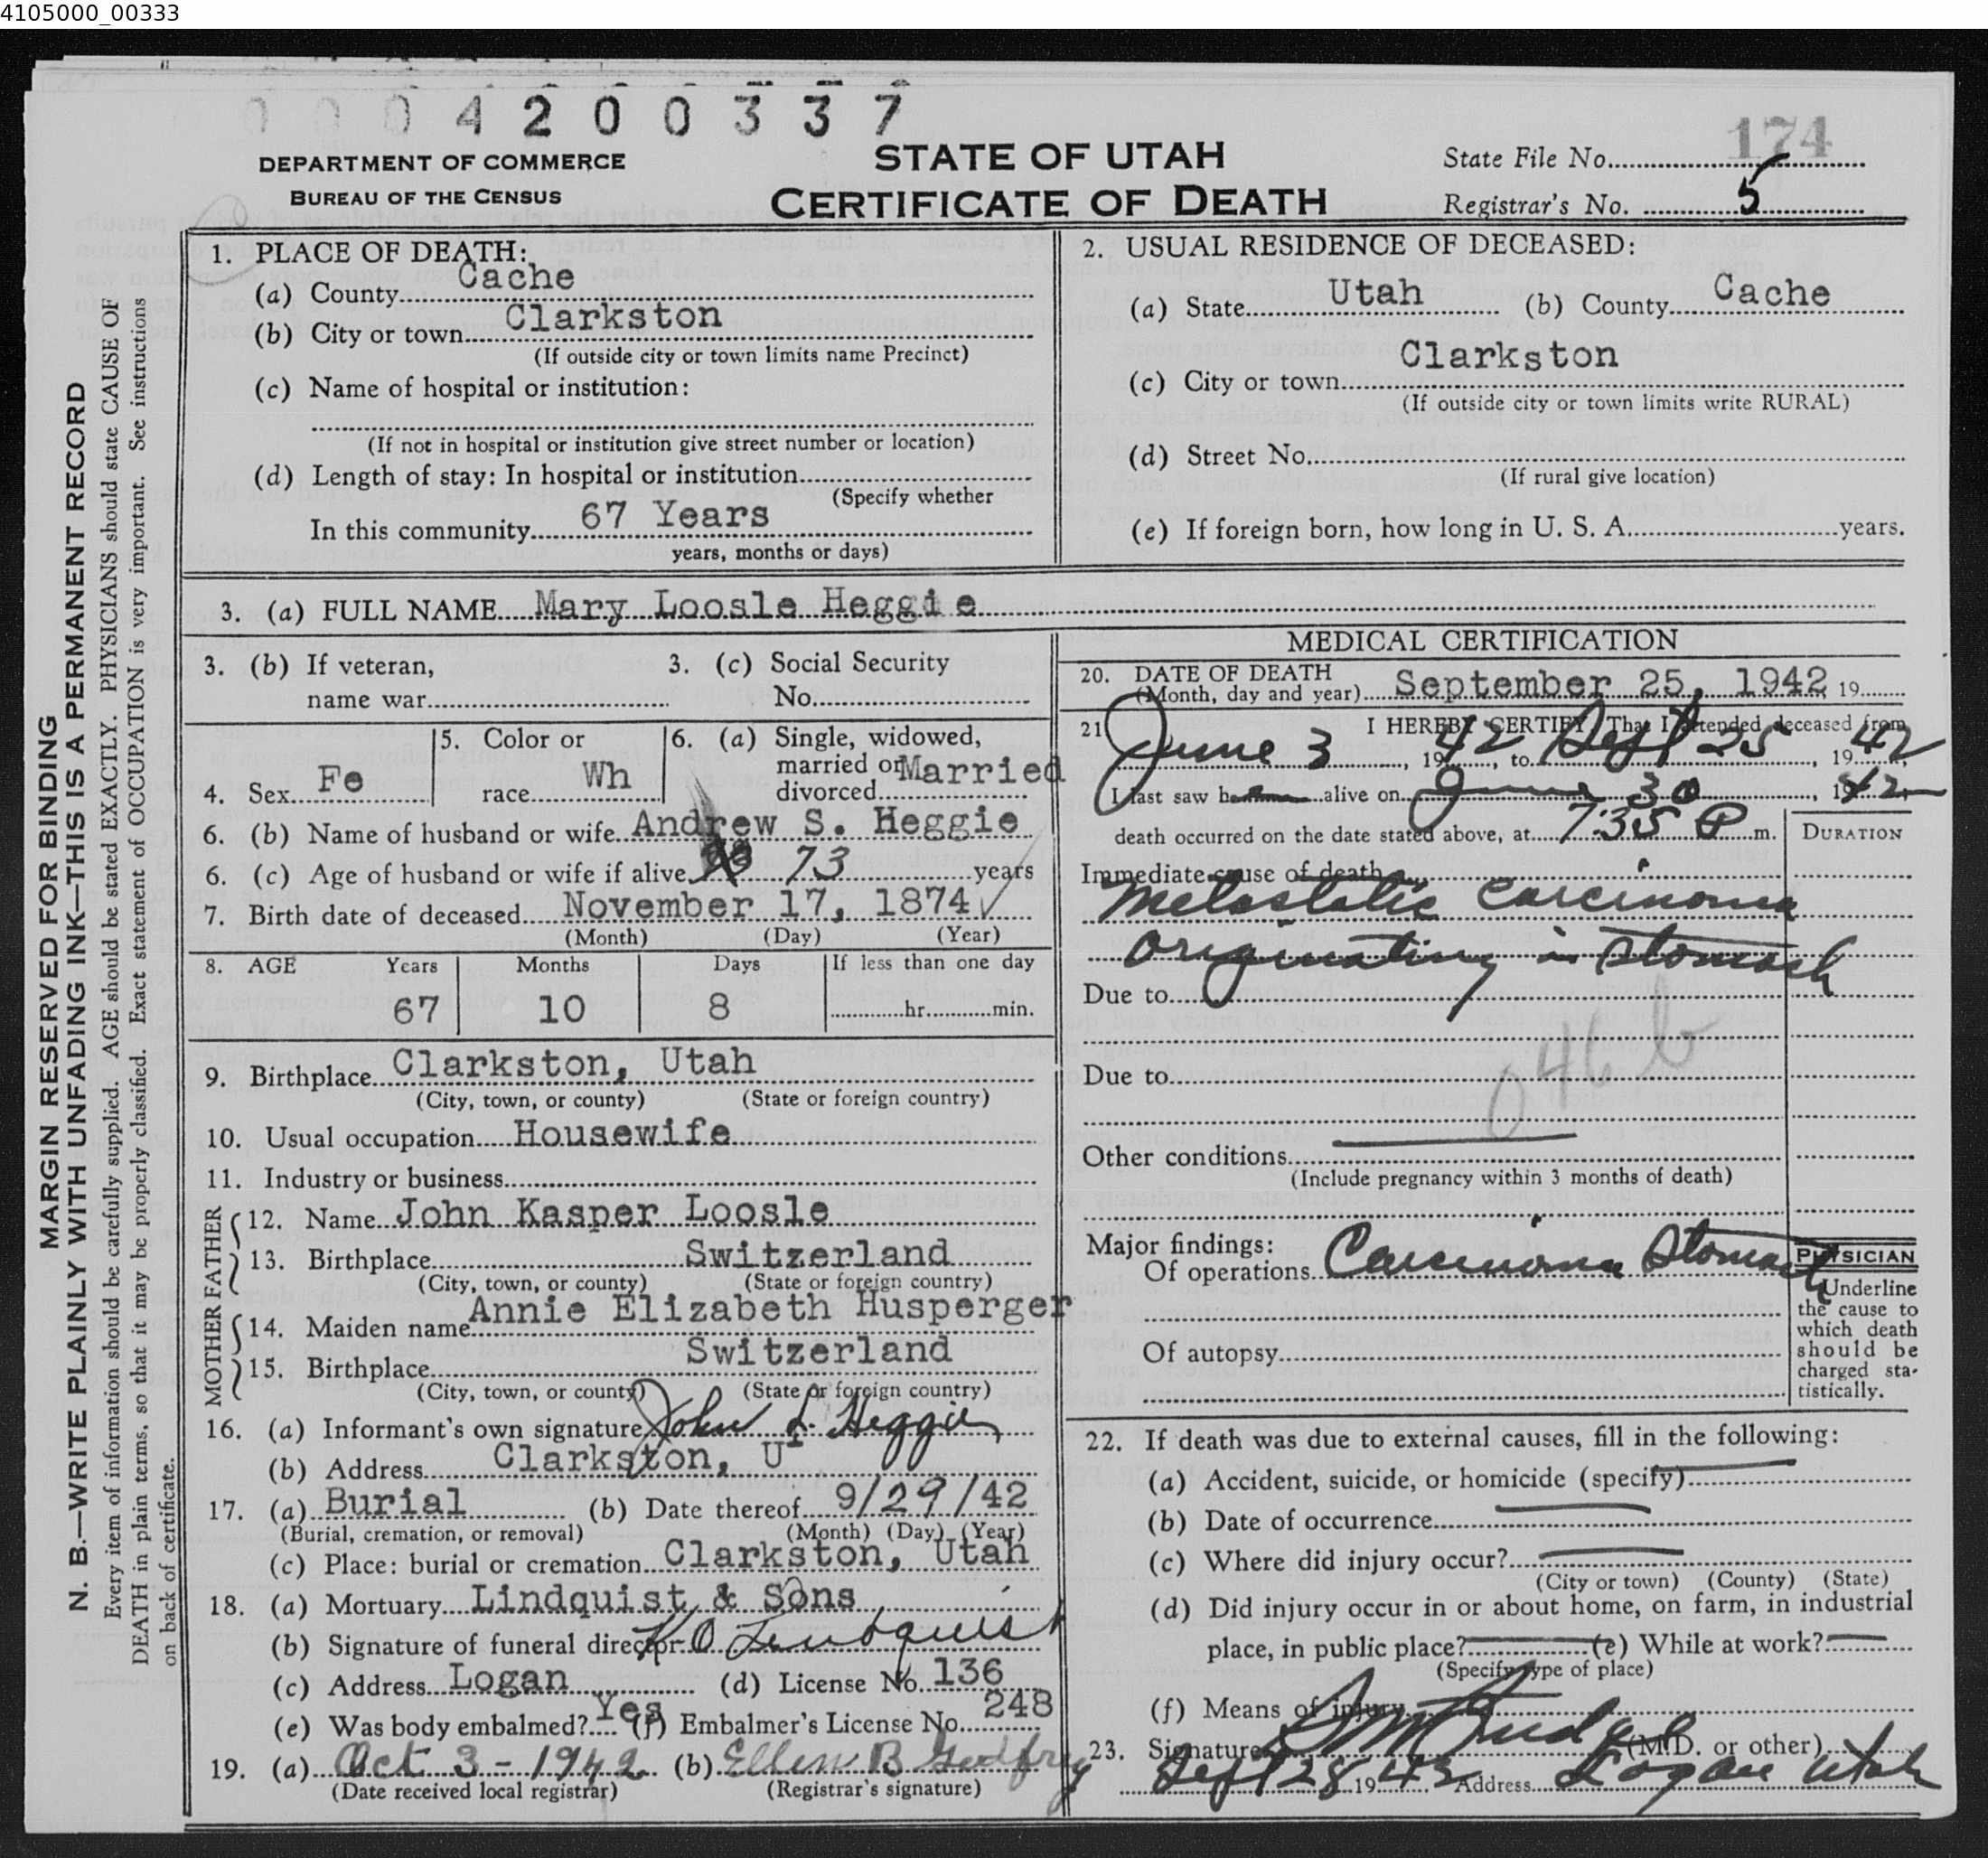 4105000_00333
0 0 0 4 2 0 0 3 3 7
174
DEPARTMENT OF COMMERCE
BUREAU OF THE CENSUS
STATE OF UTAH
CERTIFICATE OF DEATH
State File No.
Registrar's No. 5
MARGIN RESERVED FOR BINDING
N. B.—WRITE PLAINLY WITH UNFADING INK—THIS IS A PERMANENT RECORD
Every item of information should be carefully supplied. AGE should be stated EXACTLY. PHYSICIANS should state CAUSE OF
DEATH in plain terms, so that it may be properly classified. Exact statement of OCCUPATION is very important. See instructions
on back of certificate.
1. PLACE OF DEATH:
(a) County Cache
(b) City or town Clarkston
(If outside city or town limits name Precinct)
(c) Name of hospital or institution:
(If not in hospital or institution give street number or location)
(d) Length of stay: In hospital or institution
(Specify whether
In this community 67 Years
years, months or days)
2. USUAL RESIDENCE OF DECEASED:
(a) State Utah (b) County Cache
Clarkston
(c) City or town
(If outside city or town limits write RURAL)
(d) Street No.
(If rural give location)
(e) If foreign born, how long in U. S. A. years.
3. (a) FULL NAME Mary Loosle Heggie
3. (b) If veteran, 3. (c) Social Security
name war No.
4. Sex Fe 5. Color or race Wh 6. (a) Single, widowed, married or divorced Married
6. (b) Name of husband or wife Andrew S. Heggie
6. (c) Age of husband or wife if alive 73 years
7. Birth date of deceased November 17, 1874
(Month) (Day) (Year)
8. AGE Years Months Days If less than one day
67 10 8 hr. min.
9. Birthplace Clarkston, Utah
(City, town, or county) (State or foreign country)
10. Usual occupation Housewife
11. Industry or business
FATHER
12. Name John Kasper Loosle
13. Birthplace Switzerland
(City, town, or county) (State or foreign country)
MOTHER
14. Maiden name Annie Elizabeth Husperger
15. Birthplace Switzerland
(City, town, or county) (State or foreign country)
16. (a) Informant's own signature John L. Heggie
(b) Address Clarkston, Ut
17. (a) Burial (b) Date thereof 9/29/42
(Burial, cremation, or removal) (Month) (Day) (Year)
(c) Place: burial or cremation Clarkston, Utah
18. (a) Mortuary Lindquist & Sons
(b) Signature of funeral director K.O. Lindquist
(c) Address Logan (d) License No. 136
(e) Was body embalmed? Yes (f) Embalmer's License No. 248
19. (a) Oct 3 - 1942 (b) Ellen B Godfrey
(Date received local registrar) (Registrar's signature)
MEDICAL CERTIFICATION
20. DATE OF DEATH
(Month, day and year) September 25, 1942 19
21 I HEREBY CERTIFY, That I attended deceased from
June 3, 1942, to Sept 25, 1942
I last saw h alive on June 30, 1942
death occurred on the date stated above, at 7:35 P m.
DURATION
Immediate cause of death
Metastatic Carcinoma
originating in stomach
Due to
Due to
046 b
Other conditions
(Include pregnancy within 3 months of death)
Major findings:
Of operations Carcinoma Stomach
Of autopsy
PHYSICIAN
Underline
the cause to
which death
should be
charged sta-
tistically.
22. If death was due to external causes, fill in the following:
(a) Accident, suicide, or homicide (specify)
(b) Date of occurrence
(c) Where did injury occur?
(City or town) (County) (State)
(d) Did injury occur in or about home, on farm, in industrial
place, in public place? (e) While at work?
(Specify type of place)
(f) Means of injury
23. Signature S M Budge (M.D. or other)
Sept 28 1942 Address Logan Utah